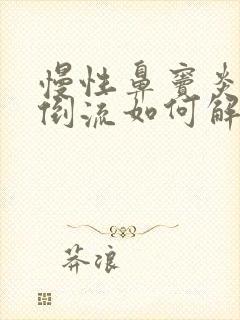 慢性鼻窦炎
倒流如何解
莽浪